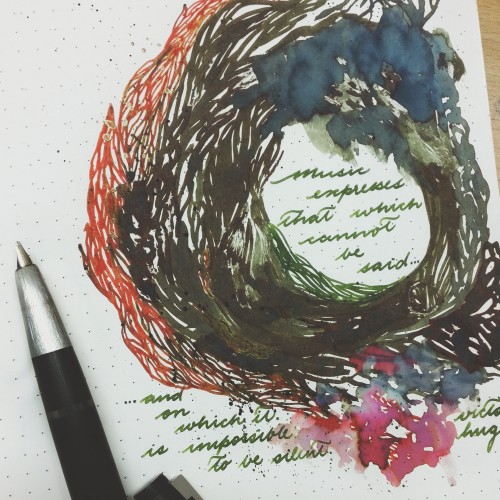 music
expresses
that which
cannot
be
said...
...and
on
which it
is impossible
to be silent
victo
hug